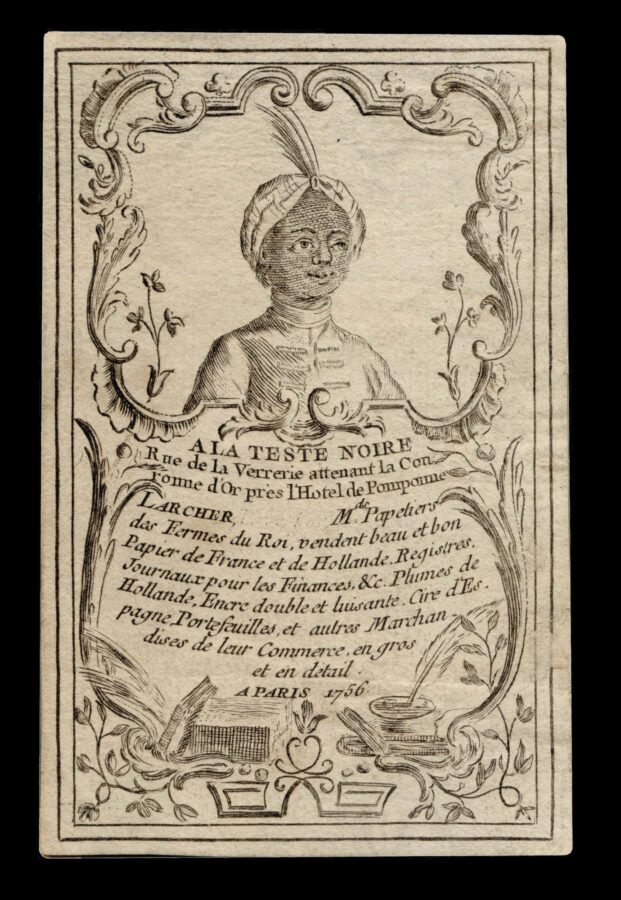 A LA TESTE NOIRE
Rue de la Verrerie attenant la Cou
ronne d'Or pres l'Hotel de Pomponne
LARCHER, M.de Papetiers
des Fermes du Roi, vendent beau et bon
Papier de France et de Hollande. Registres,
Journaux pour les Finances, &c. Plumes de
Hollande, Encre double et luisante. Cire d'Es-
pagne, Portefeuilles, et autres Marchan-
dises de leur Commerce, en gros
et en detail.
A PARIS 1756.